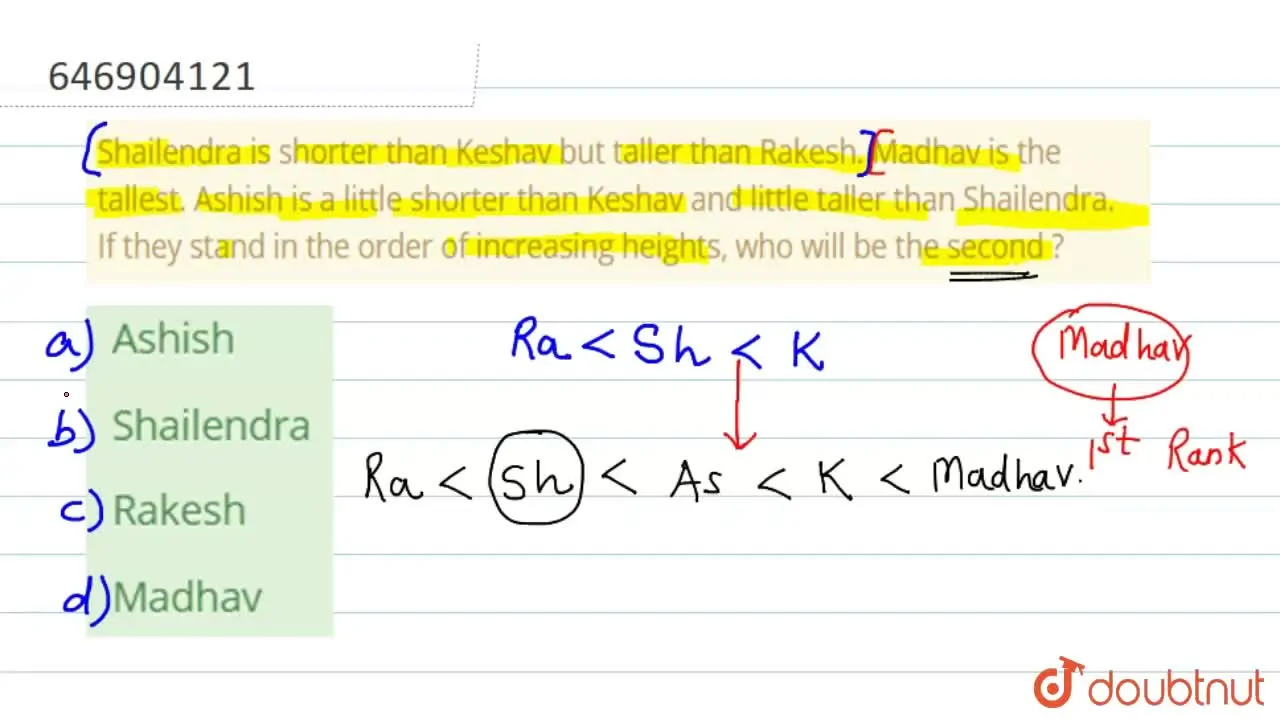 646904121
[Shailendra is shorter than Keshav but taller than Rakesh.] [Madhav is the
tallest. Ashish is a little shorter than Keshav and little taller than Shailendra.
If they stand in the order of increasing heights, who will be the second ?
a) Ashish
b) Shailendra
c) Rakesh
d) Madhav
Ra < Sh < K
Madhav
1st Rank
Ra < Sh < As < K < Madhav.
doubtnut